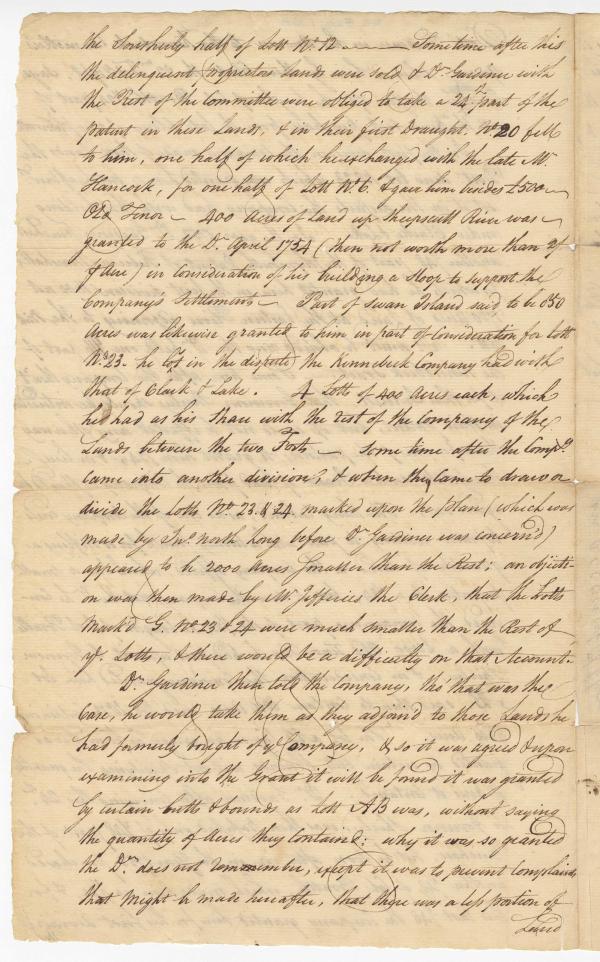 the Southerly half of Lott No. 12 ——— Sometime after this
the delinquent Proprietors Lands were sold, & Dr. Gardiner with
the Rest of the Committee were obliged to take a 24th part of the
patent in these Lands, & in their first Draught, No. 20 fell
to him, one half of which he exchanged with the late Mr.
Hancock, for one half of Lott No. 6. & gave him besides £500 —
Old Tenor — 400 Acres of Land up Sheepscutt River was
granted to the Dr. April 1754 (then not worth more than 2/
⅌ Acre) in Consideration of his building a Sloop to support the
Company's Settlements — Part of Swan Island said to be 850
Acres was likewise granted to him in part of Consideration for Lott
No. 23 - he lost in the dispute the Kennebeck Company had with
that of Clark & Lake. 4 Lotts of 400 Acres each, which
he had as his Share with the rest of the Company of the
Lands between the two Forts — Some time after the Compy.
came into another division, & when they came to draw or
divide the Lotts No. 23. & 24 marked upon the plan (which was
made by Jno. North long before Dr. Gardiner was concern'd)
appeared to be 2000 Acres Smaller than the Rest; an objecti-
on was then made by Mr. Jefferies the Clerk, that the Lotts
Mark'd G. No. 23 & 24 were much smaller than the Rest of
ye. Lotts, & there would be a difficulty on that Account.
Dr. Gardiner then told the Company, tho' that was the
Case, he would take them as they adjoin'd to those Lands he
had formerly bought of ye Company, & so it was agreed & upon
examining into the Grant it will be found it was granted
by certain butts & bounds as Lott AB was, without saying
the quantity of Acres they contained: why it was so granted
the Dr. does not remember, except it was to prevent Complaints
that might be made hereafter, that there was a less portion of
Land